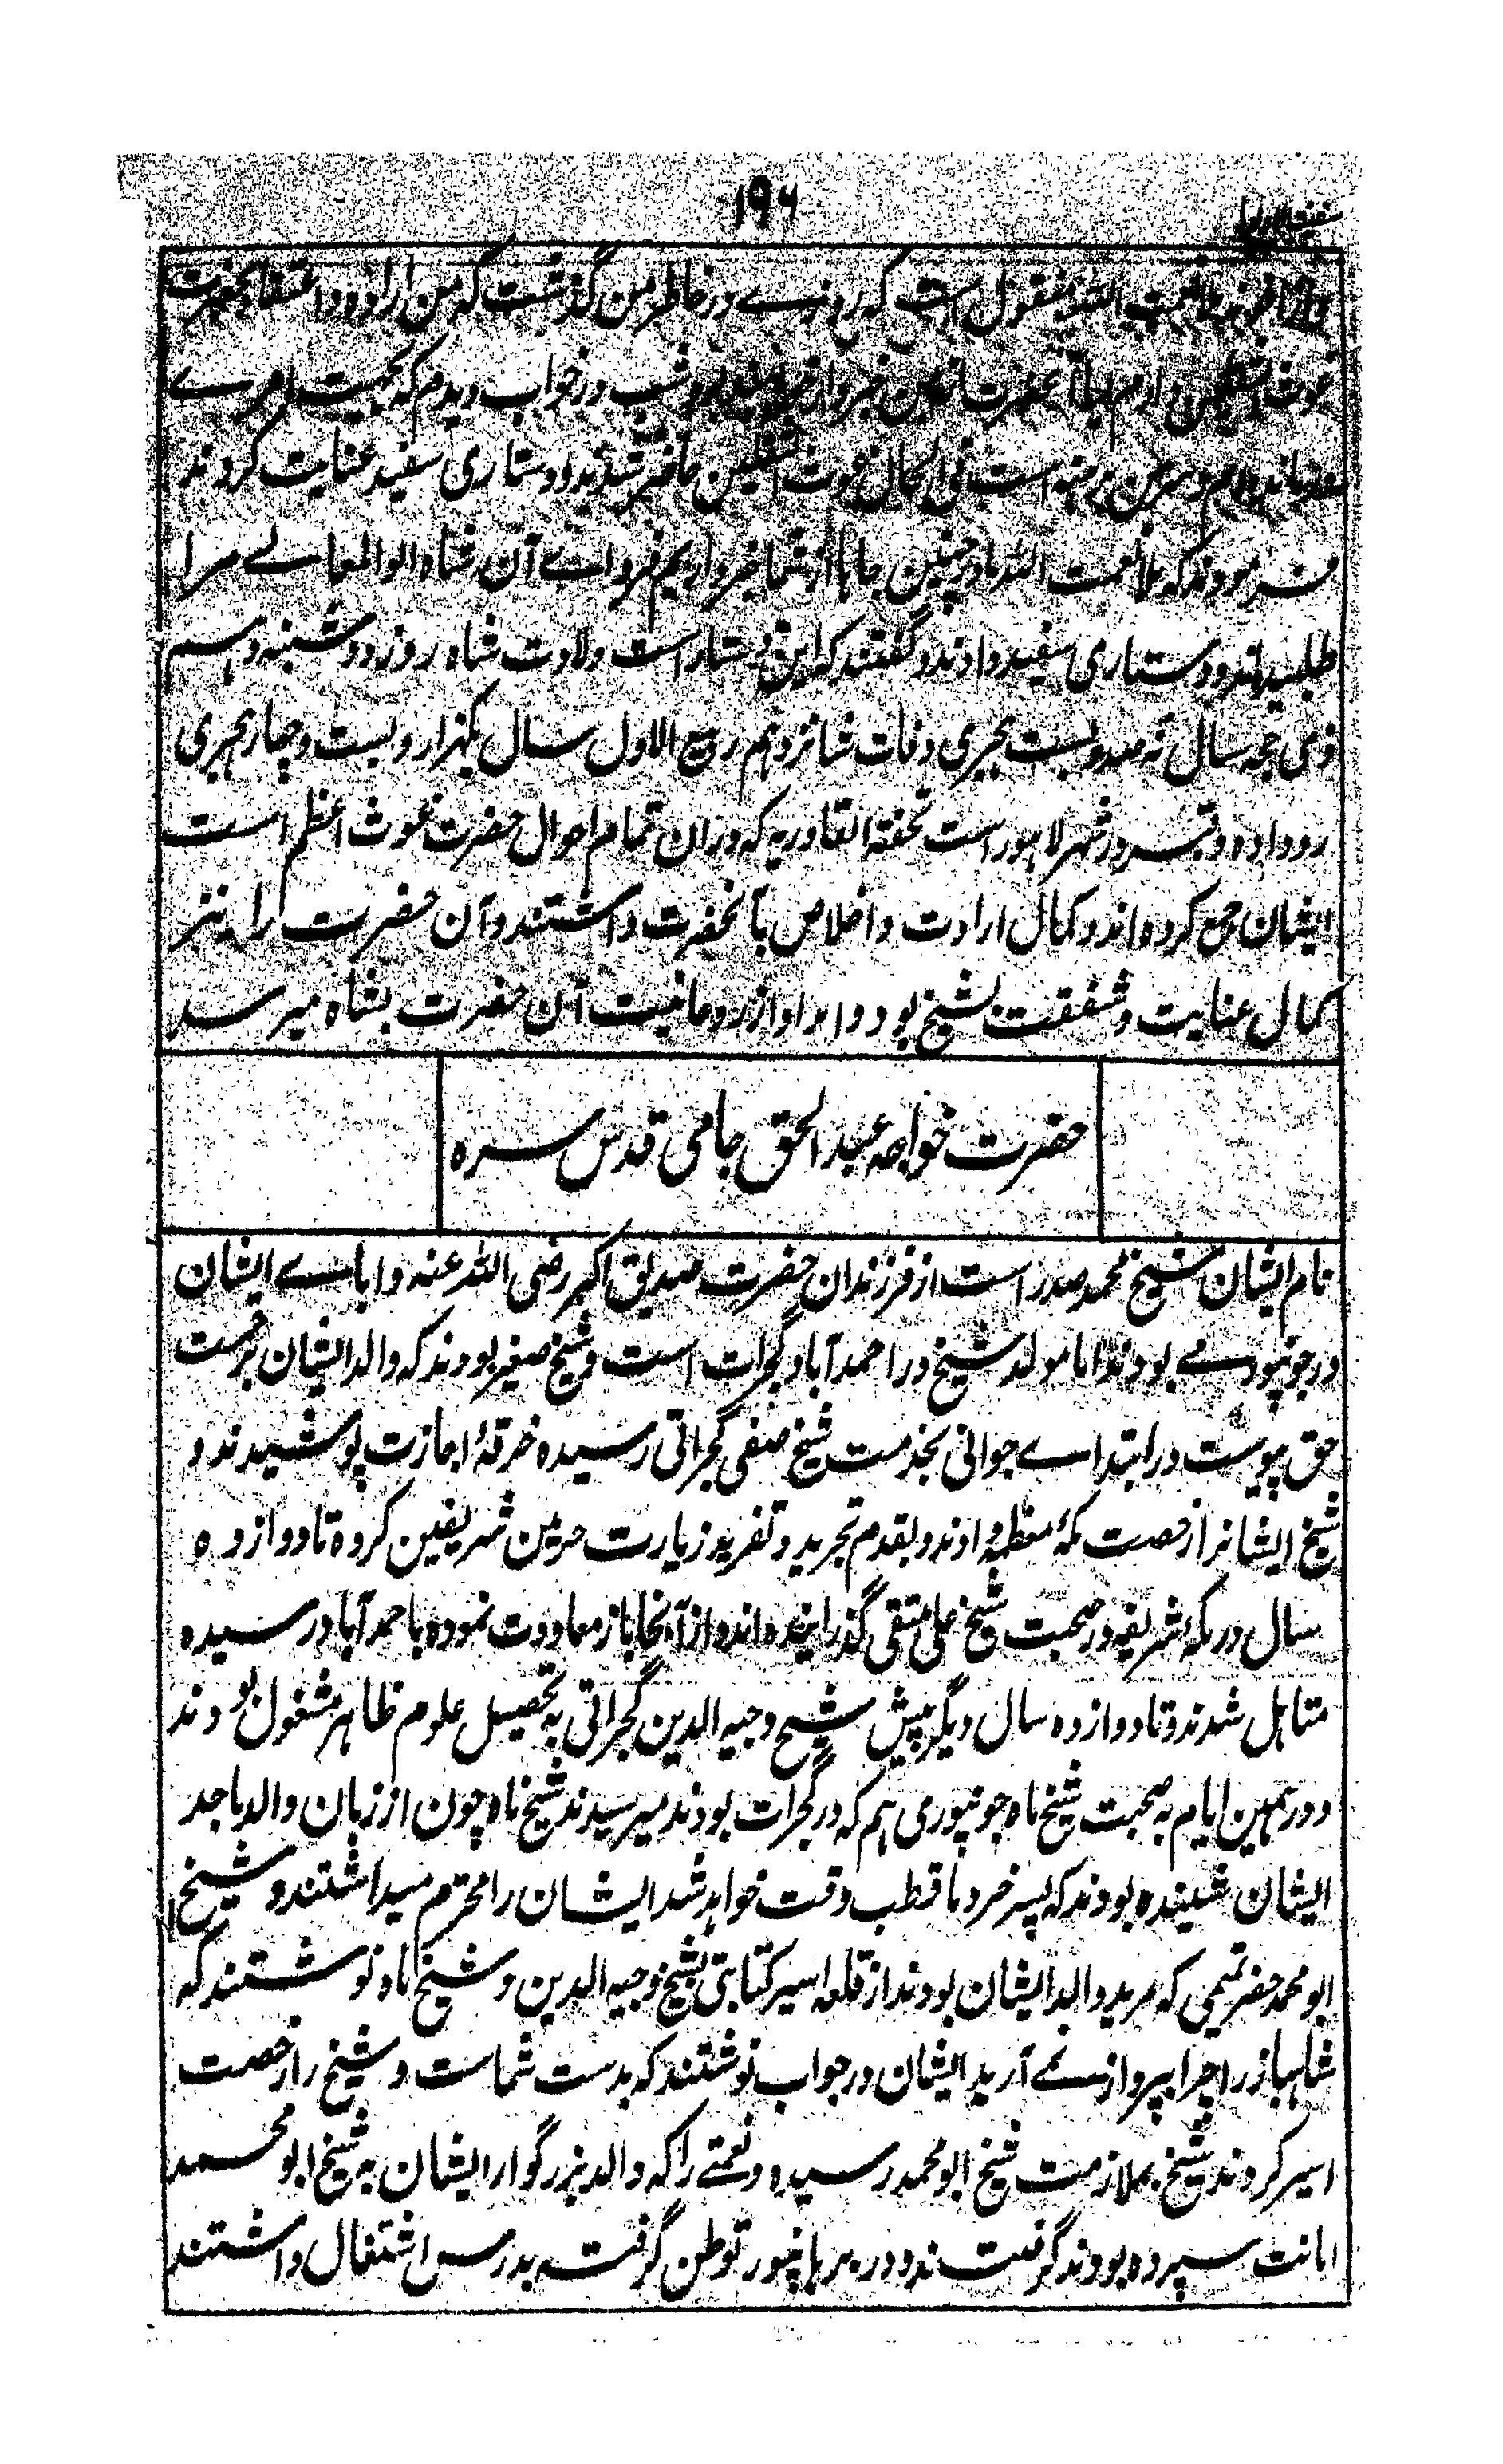 ۱۹۶
سفینة الاولیا
ملا نعمت الله منقول است که روزے در خاطر من گذشت که من ارادہ و اعتقاد بحضرت
غوث الثقلین دارم آیا آنحضرت از من خبر دارند شب در خواب دیدم که بجهت امرے
درماندہ ام و سر من برهنه است فی الحال غوث الثقلین حاضر شدند و دستاری سفید عنایت کردند
و فرمودند که ملا نعمت الله ما در چنین جاها از شما خبر داریم فرداے آن شاہ ابو المعالے مرا
طلبیدند و دستاری سفید دادند و گفتند که این دستار است ولادت شاہ روز دوشنبه دهم
ذی حجه سال نه صد و بست هجری وفات شانزدهم ربیع الاول سال یکهزار و بست و چهار هجری
رو دادہ و قبر در شهر لاهور است تحفة القادریه که دران تمام احوال حضرت غوث اعظم است
ایشان جمع کردہ اند و کمال ارادت و اخلاص بآنحضرت داشتند و آن حضرت را نیز
کمال عنایت و شفقت بشیخ بود و امداد از روحانیت آن حضرت بشاہ میرسد
حضرت خواجه عبد الحق جامی قدس سرہ
نام ایشان شیخ محمد صدر است از فرزندان حضرت صدیق اکبر رضی الله عنه و اباے ایشان
در جونپور مے بودند اما مولد شیخ در احمد آباد گجرات است و شیخ صغیر بودند که والد ایشان برحمت
حق پیوست در ابتداے جوانی بخدمت شیخ صفی گجراتی رسیدہ خرقۂ اجازت پوشیدند و
شیخ ایشانرا رخصت مکۂ معظمه دادند و بقدم تجرید و تفرید زیارت حرمین شریفین کردہ تا دوازدہ
سال در مکۂ شریفه در صحبت شیخ علی متقی گذرانیدہ اند و از آنجا باز معاودت نمودہ باحمد آباد رسیدہ
متاهل شدند و تا دوازدہ سال دیگر پیش شیخ وجیه الدین گجراتی به تحصیل علوم ظاهر مشغول بودند
و در همین ایام به صحبت شیخ ماہ جونپوری هم که در گجرات بودند میرسیدند شیخ ماہ چون از زبان والد ماجد
ایشان شنیدہ بودند که پسر خرد ما قطب وقت خواهد شد ایشان را محترم میداشتند و شیخ
ابو محمد خضر تمیمی که مرید والد ایشان بودند از قلعه اسیر کتابتی بشیخ وجیه الدین و شیخ ماہ نوشتند که
شاهباز را چرا بپرواز نمے آرید ایشان در جواب نوشتند که بدست شماست و شیخ را رخصت
اسیر کردند شیخ بملازمت شیخ ابو محمد رسیدہ و نعمتے را که والد بزرگوار ایشان به شیخ ابو محمد
امانت سپردہ بودند گرفتند و در برهانپور توطن گرفته بدرس اشتغال داشتند